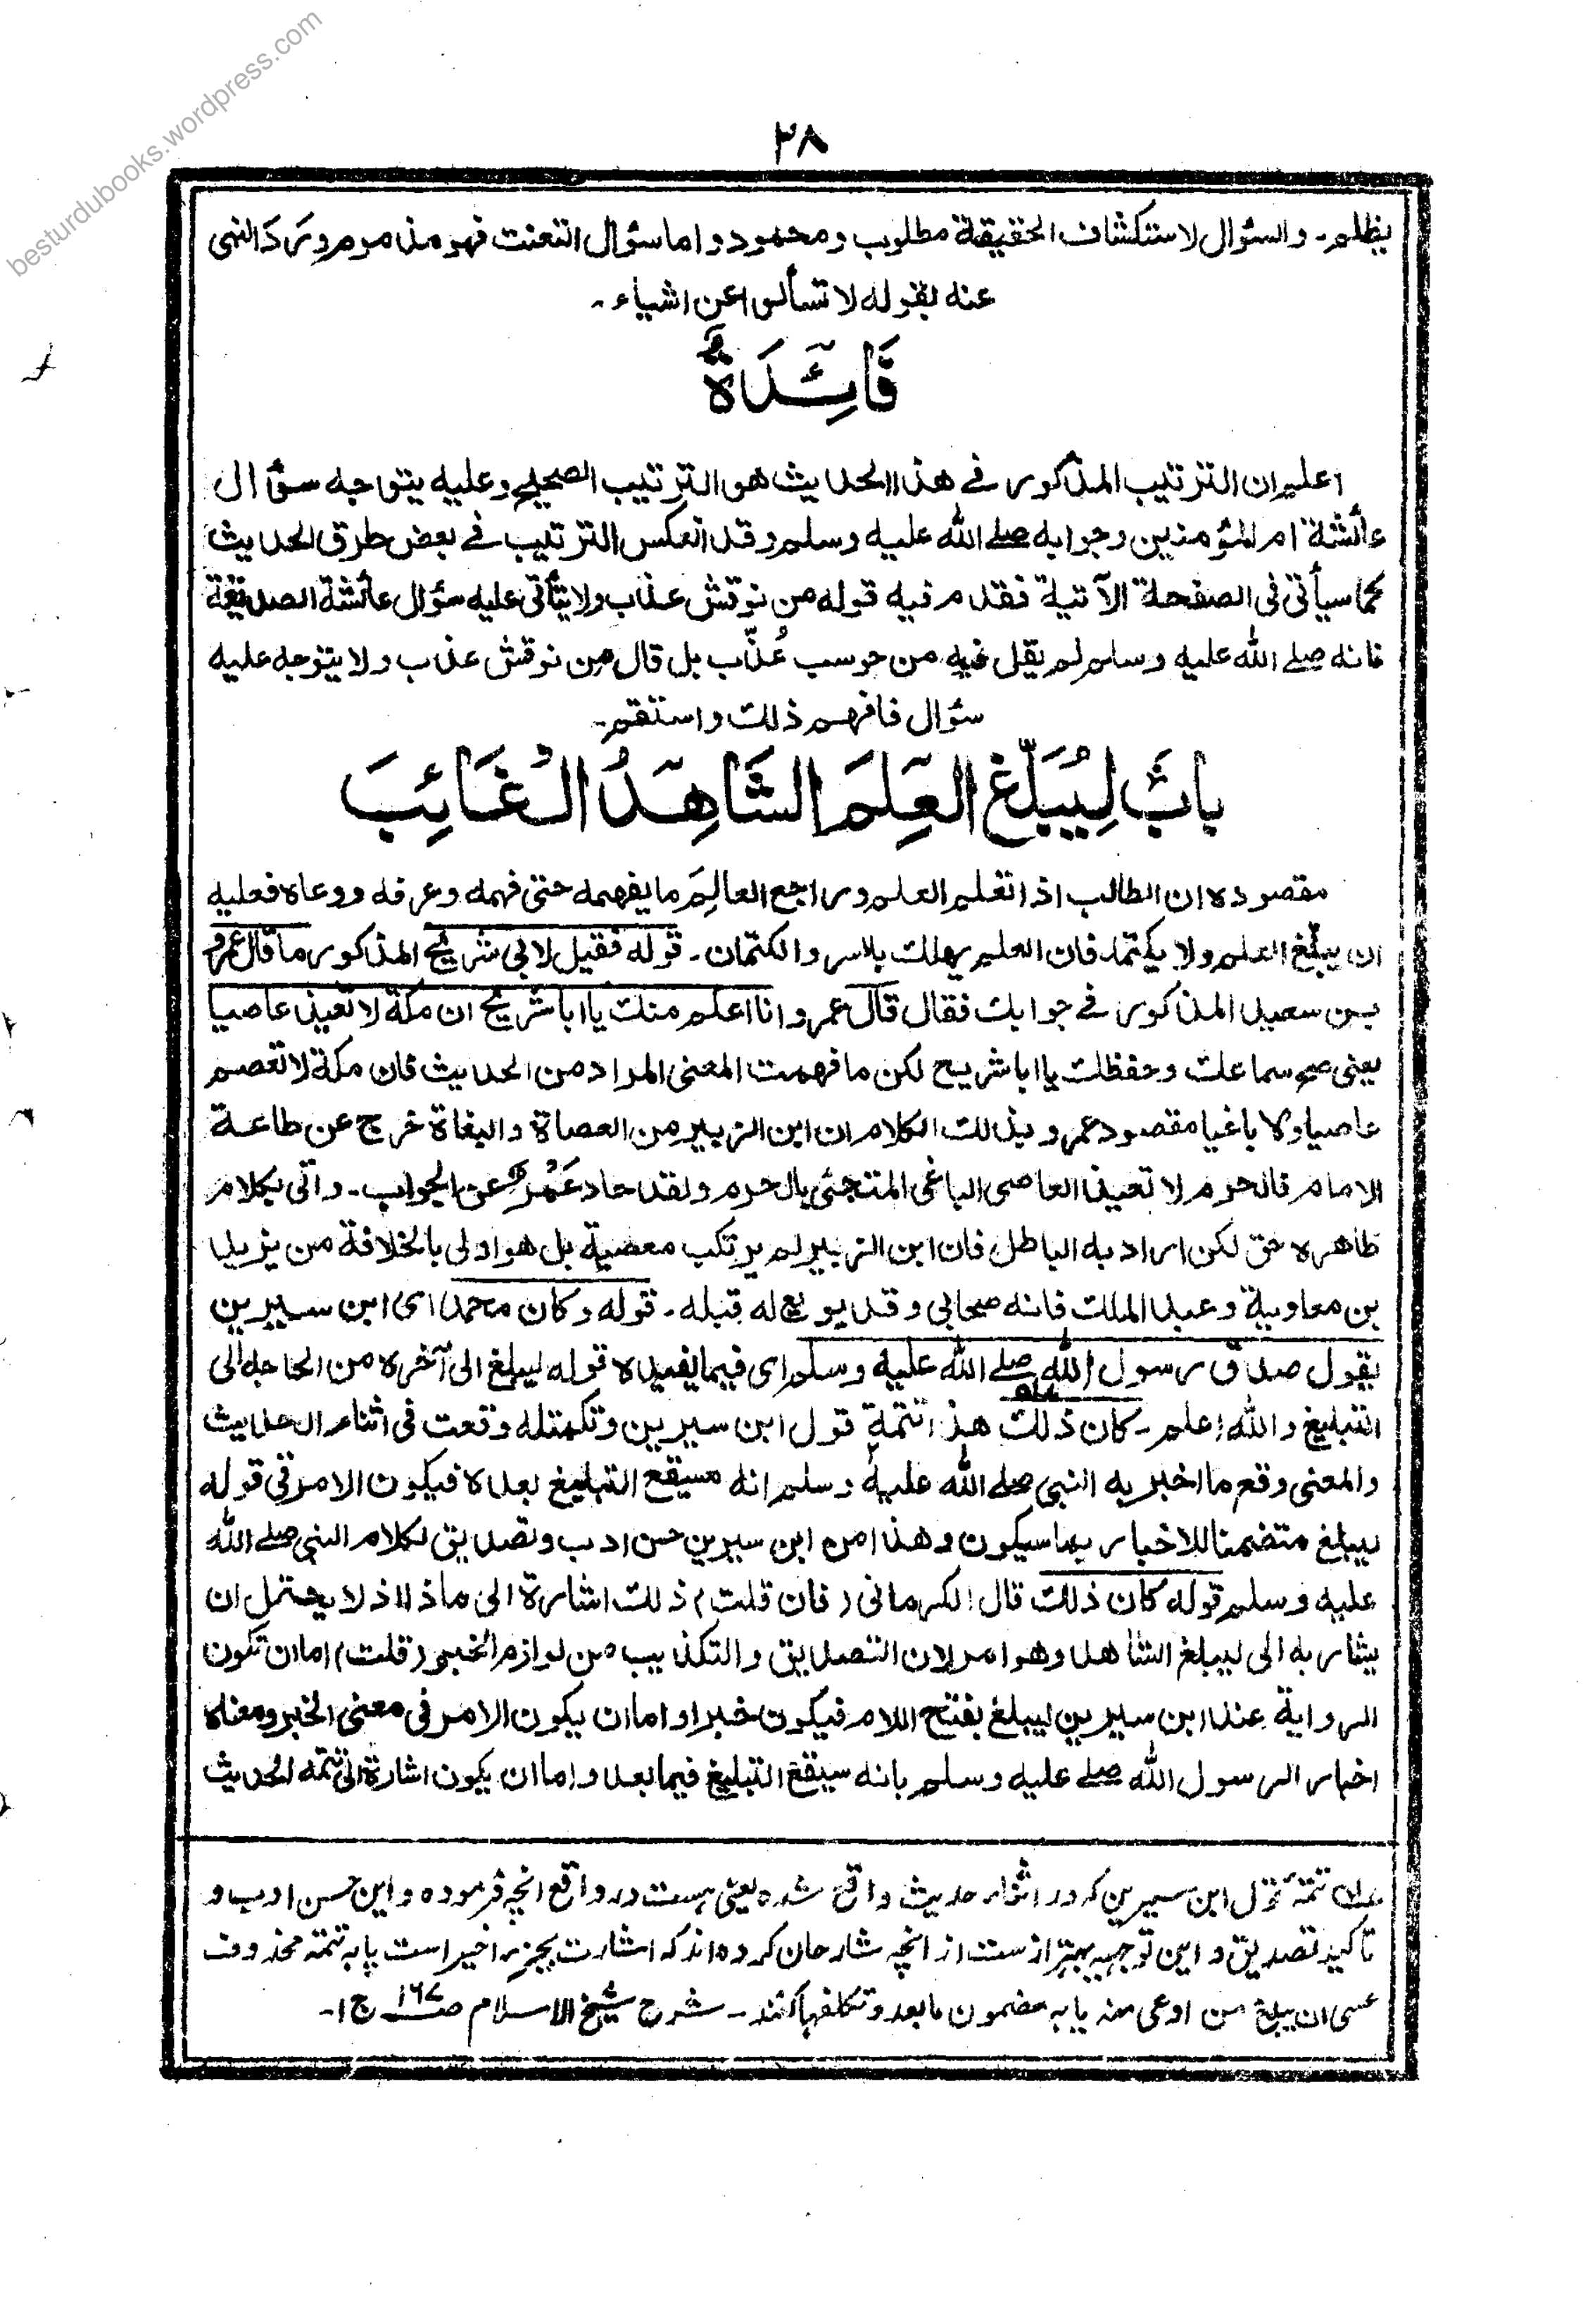 besturdubooks.wordpress.com
۳۸
بظلم۔ والسؤال لاستكشاف الحقيقة مطلوب ومحمود واما سؤال التعنت فهو مذموم ورد النهى
عنه بقوله لا تسألوا عن اشياء۔
فَائِدَةٌ
اعلم ان الترتيب المذكور فى هذا الحديث هو الترتيب الصحيح وعليه يتوجه سؤال
عائشة ام المؤمنين وجوابه صلى الله عليه وسلم وقد انعكس الترتيب فى بعض طرق الحديث
كما سيأتى فى الصفحة الآتية فقدم فيه قوله من نوقش عذاب ولا يتأتى عليه سؤال عائشة الصديقة
فانه صلى الله عليه وسلم لم يقل فيه من حوسب عُذّب بل قال من نوقش عذب ولا يتوجه عليه
سؤال فافهم ذلك واستقم۔
بابٌ لِيُبَلِّغ العِلمَ الشَاهِدُ الْغَائِبَ
مقصوده ان الطالب اذا تعلم العلم وراجع العالِمَ ما يفهمه حتى فهمه وعرفه ووعاه فعليه
ان يبلّغ العلم ولا يكتمه فان العلم يهلك بالاسر والكتمان۔ قوله فقيل لابى شريح المذكور ما قال عمرو
بن سعيد المذكور فى جوابك فقال قال عمرو انا اعلم منك يا ابا شريح ان مكة لا تعيذ عاصيا
يعنى صح سماعك وحفظك يا ابا شريح لكن ما فهمت المعنى المراد من الحديث فان مكة لا تعصم
عاصيا ولا باغيا مقصود عمرو بذلك الكلام ان ابن الزبير من العصاة والبغاة خرج عن طاعة
الامام فالحرم لا تعيذ العاصى الباغى الملتجئ بالحرم ولقد حاد عَمْرو عن الجواب۔ واتى بكلام
ظاهره حق لكن اراد به الباطل فان ابن الزبير لم يرتكب معصية بل هو اولى بالخلافة من يزيد
بن معاوية وعبد الملك فانه صحابى وقد بويع له قبله۔ قوله وكان محمد اى ابن سيرين
يقول صدق رسول الله صلى الله عليه وسلم اى فيما يفيده قوله ليبلغ الى آخره من الحاجة الى
التبليغ والله اعلم۔ كان ذلك هذا تتمة قول ابن سيرين وتكمتله وقعت فى اثناء الحديث
والمعنى وقع ما اخبر به النبى صلى الله عليه وسلم انه سيقع التبليغ بعده فيكون الامر فى قوله
ليبلغ متضمنا للاخبار بما سيكون وهذا من ابن سيرين حسن ادب وتصديق لكلام النبى صلى الله
عليه وسلم قوله كان ذلك قال الكرمانى (فان قلت) ذلك اشارة الى ماذا اذ لا يحتمل ان
يشار به الى ليبلغ الشاهد وهو امر لان التصديق والتكذيب من لوازم الخبر (قلت) اما ان تكون
الرواية عند ابن سيرين ليبلغ بفتح اللام فيكون خبرا واما ان يكون الامر فى معنى الخبر ومعناه
اخبار الرسول الله صلى عليه وسلم بانه سيقع التبليغ فيما بعد واما ان يكون اشارة الى تتمه الحديث
تتمۂ قول ابن سیرین کہ در اثناء حدیث واقع شدہ یعنی ہست در واقع انچہ فرمودہ و این حسن ادب و
تاکید تصدیق و این توجیہ بہتر از ست از انچہ شارحان کردہ اند کہ اشارت بجزء اخیر است یا بہ تتمہ محذوف
عسی ان یبلغ من اوعی منہ یا بہ مضمون ما بعد و تکلفہا کنند۔ شرح شیخ الاسلام صـ ۱۶۷ ج ۱۔